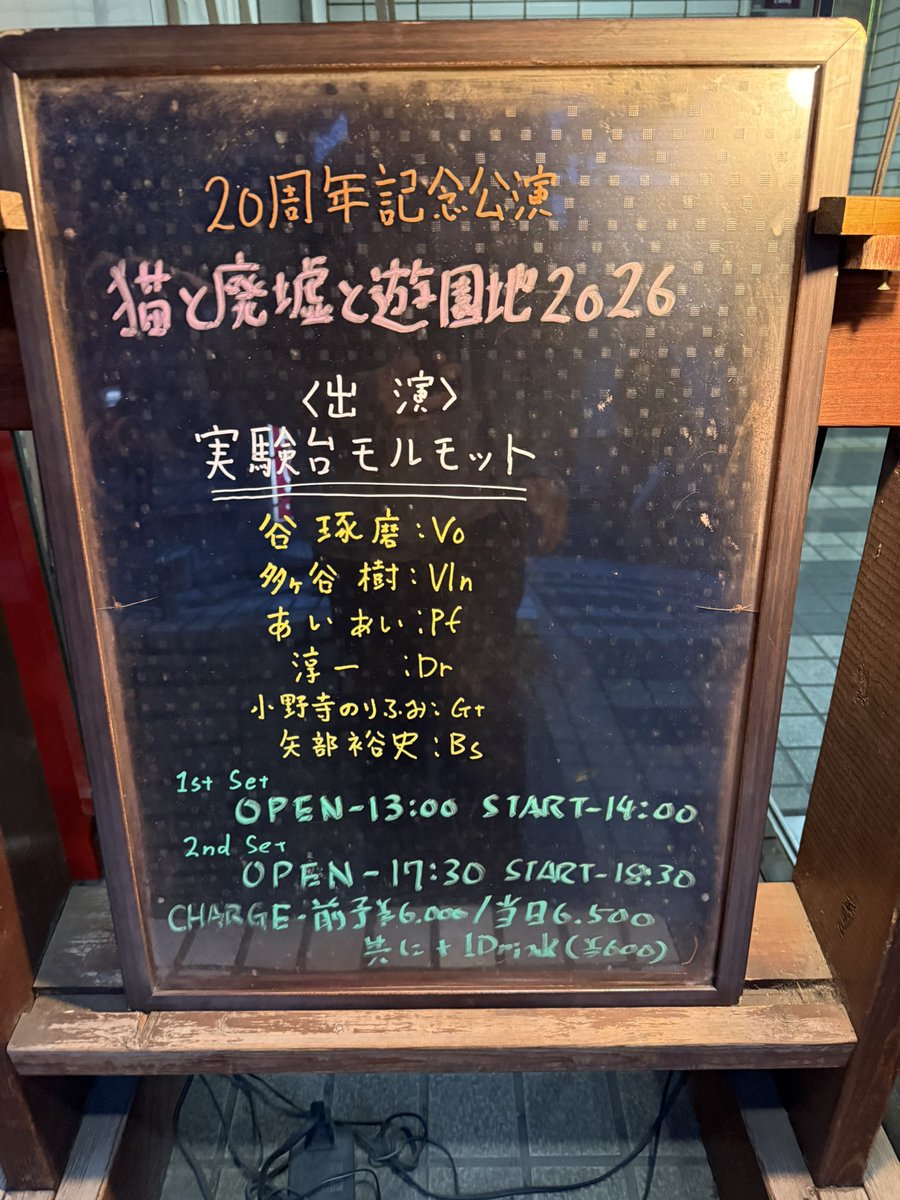 20周年記念公演
猫と廃墟と遊園地2026
〈出 演〉
実験台モルモット
谷 琢磨:Vo
多ヶ谷 樹:Vln
あい あい:Pf
淳一 :Dr
小野寺のりふお:Gt
矢部裕史:Bs
1st Set
OPEN-13:00 START-14:00
2nd Set
OPEN-17:30 START-18:30
CHARGE・前予¥6.000/当日6.500
共に+1Drink(¥600)